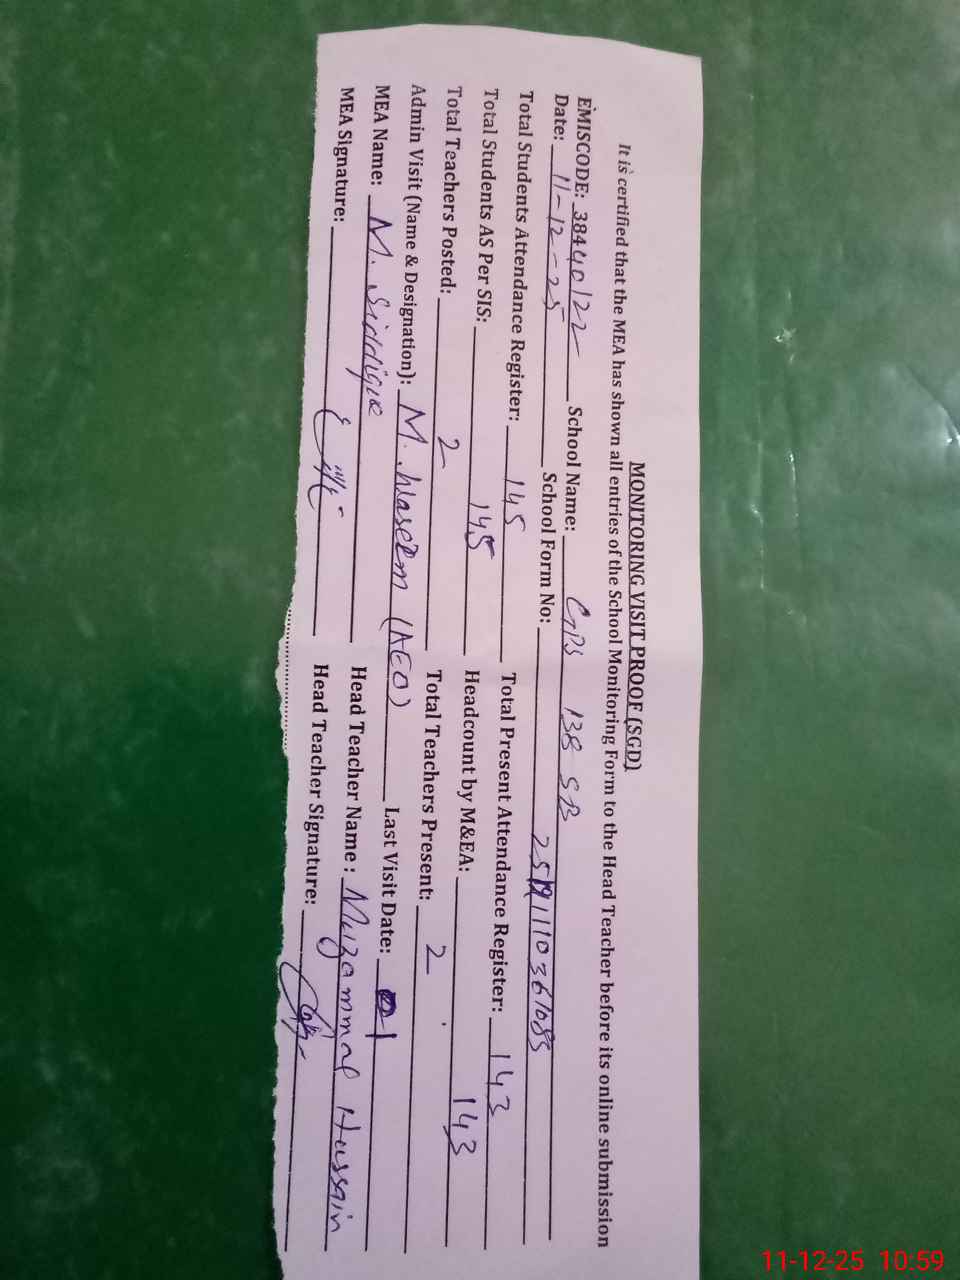 MONITORING VISIT PROOF (SGD)
It is certified that the MEA has shown all entries of the School Monitoring Form to the Head Teacher before its online submission
EMISCODE: 38440122 School Name: GPS 138 SB
Date: 11-12-25 School Form No:
Total Students Attendance Register: 145 Total Present Attendance Register: 143
Total Students AS Per SIS: 145 Headcount by M&EA: 143
Total Teachers Posted: 2 Total Teachers Present: 2
Admin Visit (Name & Designation): M. Waseem (AEO) Last Visit Date:
MEA Name: M. Siddique Head Teacher Name: Muzammal Hussain
MEA Signature: Head Teacher Signature:
11-12-25 10:59